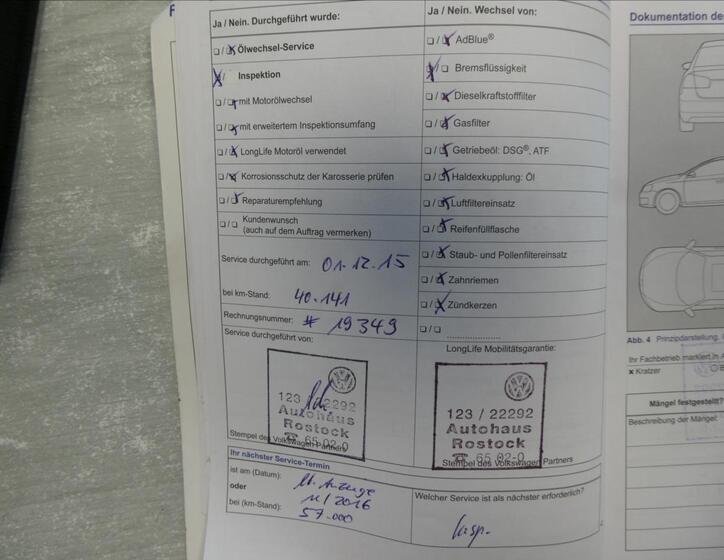 Ja / Nein. Durchgeführt wurde:
Ölwechsel-Service
Inspektion
mit Motorölwechsel
mit erweitertem Inspektionsumfang
LongLife Motoröl verwendet
Korrosionsschutz der Karosserie prüfen
Reparaturempfehlung
Kundenwunsch
(auch auf dem Auftrag vermerken)
Service durchgeführt am: 01.12.15
bei km-Stand: 40.141
Rechnungsnummer: # 19349
Service durchgeführt von:
123 / 22292
Autohaus
Rostock
☎ 65 02-0
Stempel des Volkswagen Partners
Ihr nächster Service-Termin
ist am (Datum): lt. Anzeige
oder 11/2016
bei (km-Stand): 57.000
Ja / Nein. Wechsel von:
AdBlue®
Bremsflüssigkeit
Dieselkraftstofffilter
Gasfilter
Getriebeöl: DSG®, ATF
Haldexkupplung: Öl
Luftfiltereinsatz
Reifenfüllflasche
Staub- und Pollenfiltereinsatz
Zahnriemen
Zündkerzen
LongLife Mobilitätsgarantie:
123 / 22292
Autohaus
Rostock
☎ 65 02-0
Stempel des Volkswagen Partners
Welcher Service ist als nächster erforderlich?
Insp.
Dokumentation de
Abb. 4 Prinzipdarstellung,
Ihr Fachbetrieb markiert in A
× Kratzer
Mängel festgestellt?
Beschreibung der Mängel: